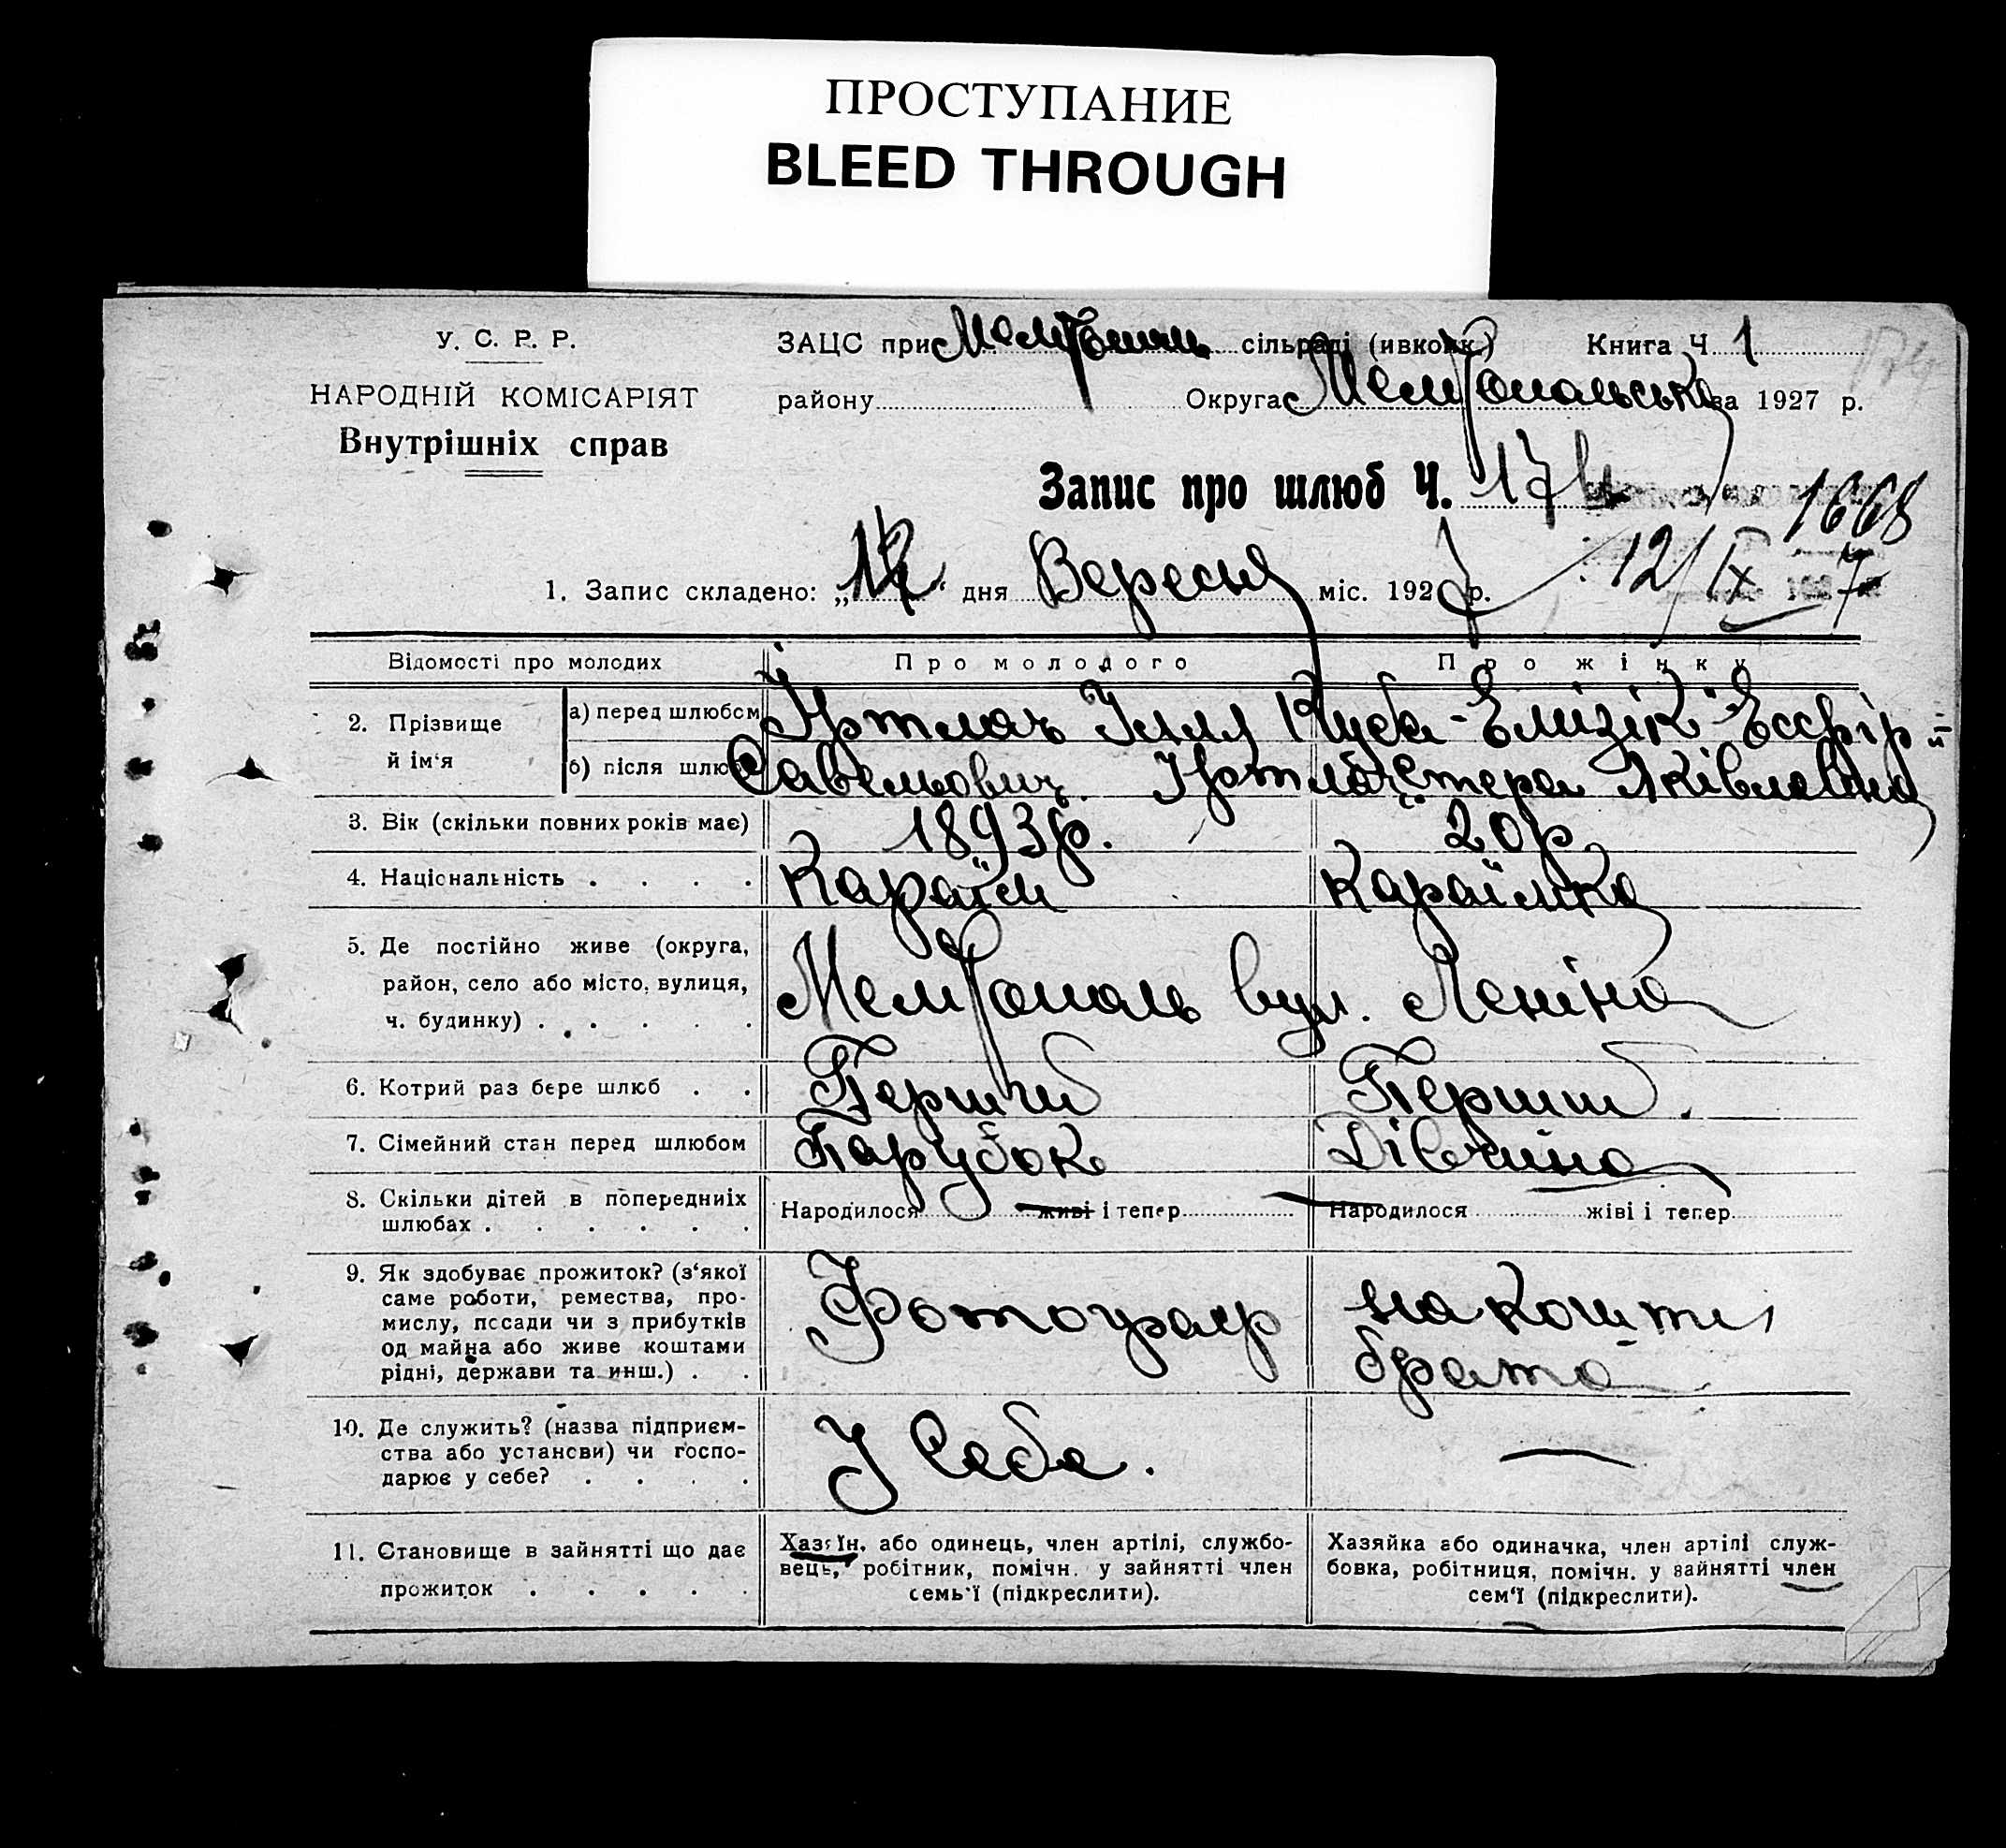 ПРОСТУПАНИЕ
BLEED THROUGH
У. С. Р. Р.
НАРОДНІЙ КОМІСАРІЯТ
Внутрішніх справ
ЗАЦС при сільраді (ивконк.) Книга Ч. 1
району Округа Мелітопольська за 1927 р.
Запис про шлюб Ч. 174
1668
12/IX 1927
1. Запис складено: „12" дня Вересня міс. 1927 р.
Відомості про молодих Про молодого Про жінку
2. Прізвище й ім'я
а) перед шлюбом Ілля Куба-Елизік Ессфір
б) після шлюбу Савельович Яківлевна
3. Вік (скільки повних років має) 1893р. 20р.
4. Національність . . . . Караїм Караїмка
5. Де постійно живе (округа,
район, село або місто, вулиця,
ч. будинку) . . . . . .
Мелітополь вул. Леніна
6. Котрий раз бере шлюб . . Перший Перший.
7. Сімейний стан перед шлюбом Парубок Дівчина
8. Скільки дітей в попередниіх
шлюбах . . . . . .
Народилося живі і тепер Народилося жіві і тепер
9. Як здобуває прожиток? (з'якої
саме роботи, ремества, про-
мислу, посади чи з прибутків
од майна або живе коштами
рідні, держави та инш.) . .
Фотограф
на кошти
брата
10. Де служить? (назва підприєм-
ства або установи) чи госпо-
дарює у себе? . . . .
У себе. —
11. Становище в зайнятті що дає
прожиток . . . . .
Хазяїн, або одинець, член артілі, службо-
вець, робітник, помічн. у зайнятті член
семь'ї (підкреслити).
Хазяйка або одиначка, член артілі служ-
бовка, робітниця, помічн. у зайнятті член
сем'ї (підкреслити).